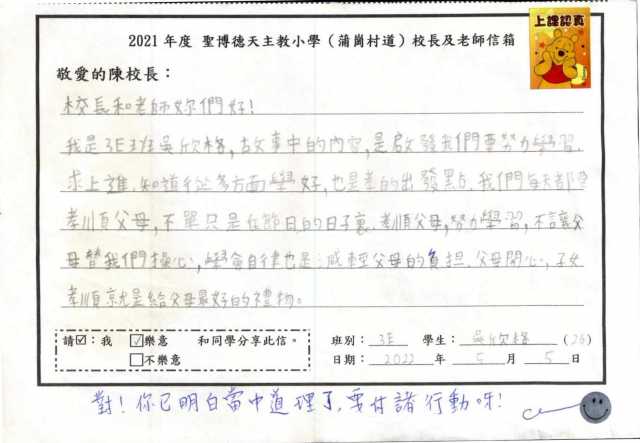 上課認真
2021 年度 聖博德天主教小學（蒲崗村道）校長及老師信箱
敬愛的陳校長：
校長和老師妳們好！
我是3E班吳欣格，故事中的內容，是啟發我們要努力學習，
求上進，知道從多方面學好，也是善的出發點，我們每天都要
孝順父母，不單只是在節日的日子裏，孝順父母，努力學習，不讓父
母替我們操心，學會自律也是減輕父母的負担，父母開心，子女
孝順就是給父母最好的禮物。
請☑：我 ☑樂意 和同學分享此信。 班別：3E 學生：吳欣格 (26)
□不樂意 日期：2022 年 5 月 5 日
對！你已明白當中道理了，要付諸行動呀！